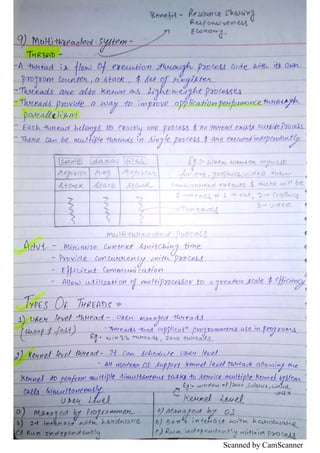 Benefit - Resource Sharing
Responsiveness
Economy.
9) Multithreaded System -
THREAD -
- A thread is flow of execution through process code with its own
program counter, a stack, & set of register.
- Threads are also known as Lightweight processes
- Threads provide a way to improve application performance through
parallelism.
- Each thread belongs to exactly one process & no thread exists outside Process
- There can be multiple threads in single process & are executed independently
code data files
Register Reg Register
Stack Stack Stack
Threads
Multithreaded Process
Advt - Minimize context switching time
- Provide concurrency with process
- Efficient Communication
- Allow utilization of multiprocessor to a greater scale & efficiency
TYPES OF THREADS →
1) User level thread - User managed threads
(simple & fast) - Threads that application programmers use in programs
2) Kernel level thread - It can schedule user level
- All modern OS support kernel level thread allowing the
kernel to perform multiple simultaneous tasks to service multiple kernel system
calls simultaneously.
User Level Kernel Level
a) Managed by Programmer a) Managed by OS
b) interface with hardware b) interface with hardware
c) Run independently c) Run independently within process
Scanned by CamScanner